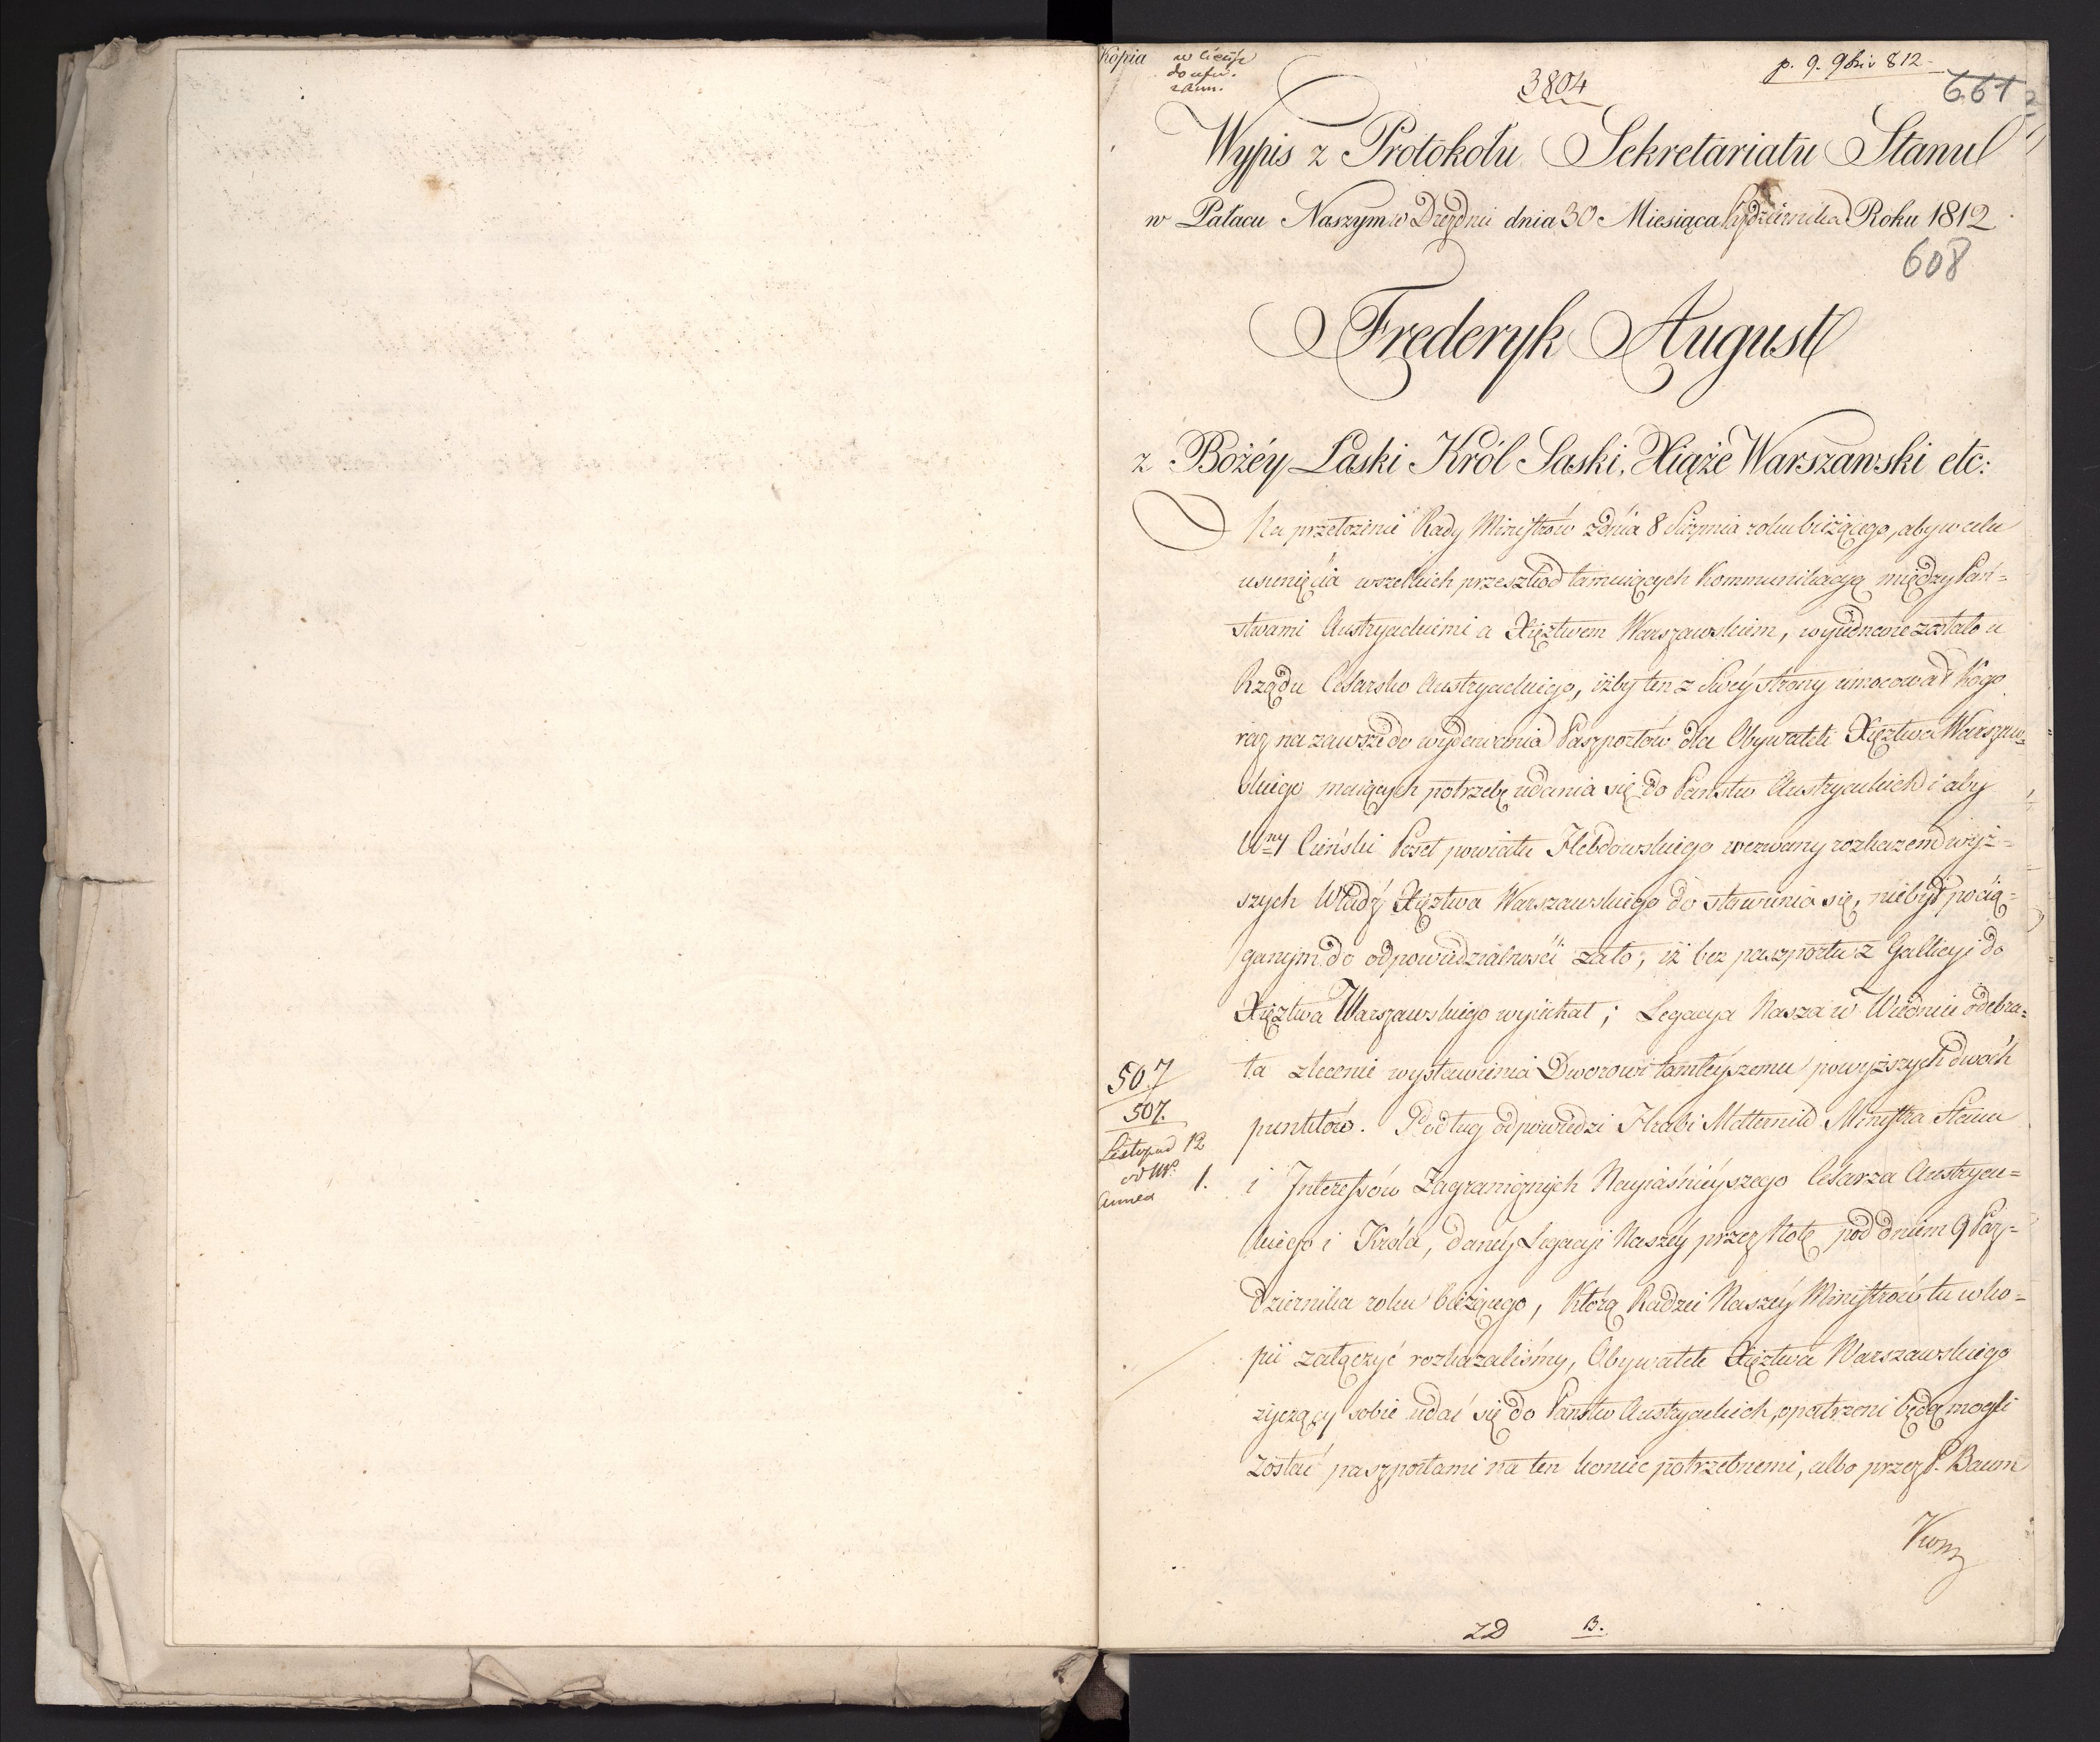 Kopia
3804
p. 9. 9bris 812
661
Wypis z Protokołu Sekretariatu Stanu
w Pałacu Naszym w Dreźnie dnia 30 Miesiąca Października Roku 1812.
608
Frederyk August
z Bożéy Łaski Król Saski, Xiąże Warszawski etc:
Na przełożenie Rady Ministrów z dnia 8 Sierpnia roku bieżącego, aby w celu
usunięcia wszelkich przeszkod tamuiących Kommunikacyą między Pań=
stwami Austryackiemi a Xięztwem Warszawskiem, wyiednane zostało u
Rządu Cesarsko Austryackiego, iżby ten z Swéy strony umocował Kogo
raz na zawsze do wydawania Paszportów dla Obywateli Xięztwa Warszaw=
skiego maiących potrzebę udania się do Państw Austryackich i aby
Wny Cieński Poseł powiatu Hebdowskiego wezwany rozkazem wyż=
szych Władz Xięztwa Warszawskiego do stawienia się, niebył pocią=
ganym do odpowiedzialności za to, iż bez paszportu z Gallicyi do
Xięztwa Warszawskiego wyiechał; Legacya Nasza w Wiedniu odebra=
ła zlecenie wystawienia Dworowi tamtéyszemu powyższych dwoch
punktów. Podług odpowiedzi Hrabi Metternich Ministra Stanu
i Interessów Zagranicznych Nayiaśnieyszego Cesarza Austryac=
kiego i Króla, danéy Legacyi Naszéy przez Notę pod dniem 9 Paź=
dziernika roku bieżącego, którą Radzie Naszéy Ministrów tu w ko=
pii załączyć rozkazaliśmy, Obywatele Xięztwa Warszawskiego
życzący sobie udać się do Państw Austryackich, opatrzeni będą mogli
zostać paszportami na ten koniec potrzebnemi, albo przez P. Baum
507
507.
Listopad 12
1.
annex
ZD B.